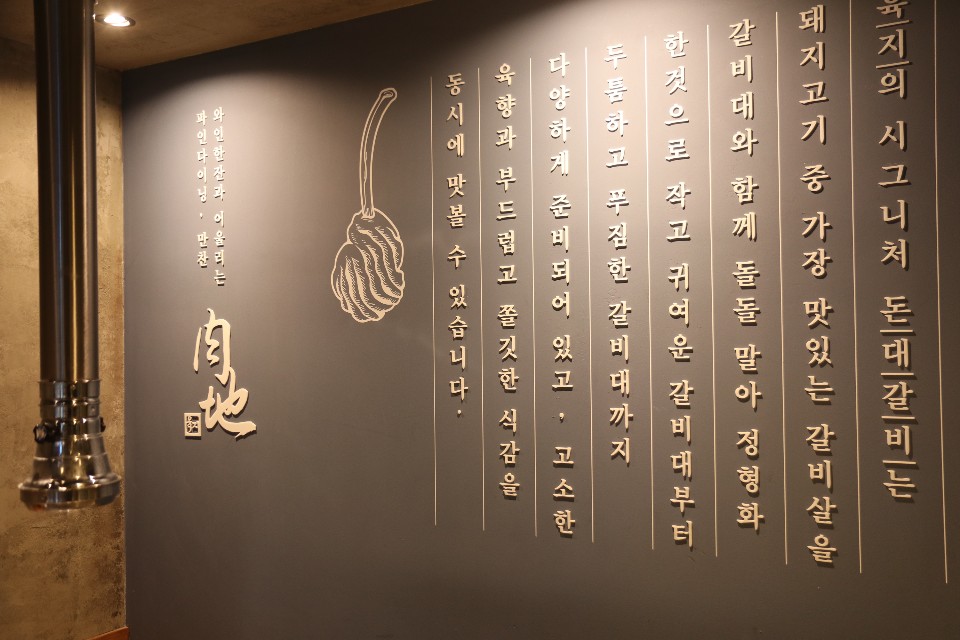 육지의 시그니처 돈대갈비는
돼지고기 중 가장 맛있는 갈비살을
갈비대와 함께 돌돌 말아 정형화
한것으로 작고 귀여운 갈비대부터
두툼하고 푸짐한 갈비대까지
다양하게 준비되어 있고, 고소한
육향과 부드럽고 쫄깃한 식감을
동시에 맛볼 수 있습니다.
와인한잔과 어울리는
파인다이닝, 만찬
肉地